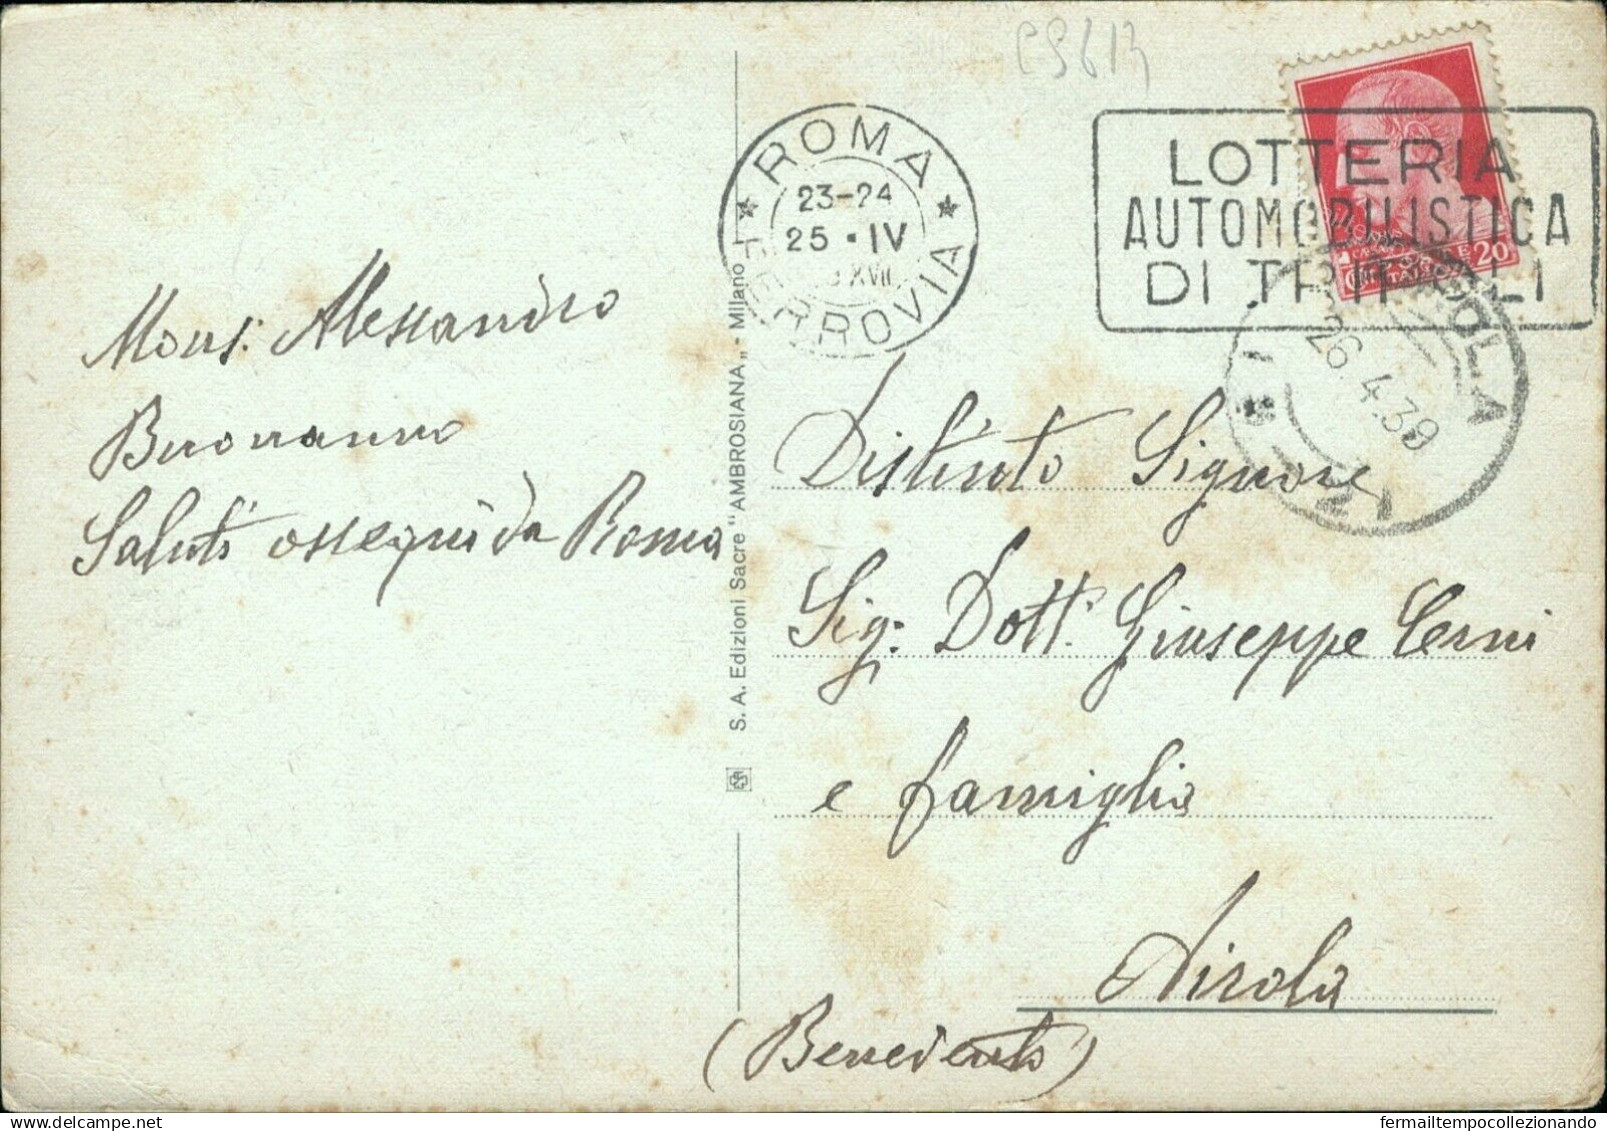 C9613
ROMA
23-24
25 · IV
XVII
FERROVIA
LOTTERIA
AUTOMOBILISTICA
DI TRIPOLI
20
AIROLA
26.4.39
Mons: Alessandro
Buonanno
Saluti ossequi da Roma
S. A. Edizioni Sacre "AMBROSIANA" - Milano
Distinto Signore
Sig: Dott. Giuseppe Cerni
e famiglia
Airola
(Benevento)
fermailtempocollezionando